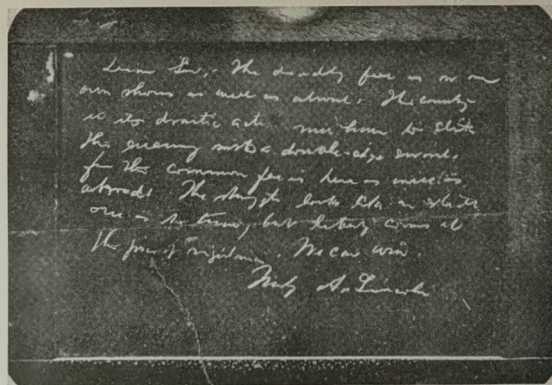 Dear Sir,. The deadly foe is on our
own shores as well as abroad. The country
in its drastic acts must have to strike
the enemy with a double-edge sword.
for the common foe is here as well as
abroad. The struggle looks like an
one as to time, but liberty comes at
the price of vigilance. We can win.
A. Lincoln